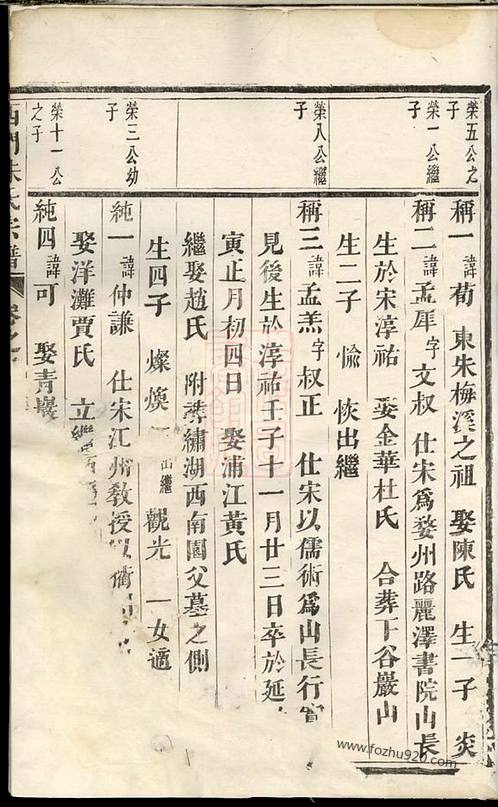 榮五公之子
稱一諱荀 東朱梅溪之祖 娶陳氏 生一子 炎
榮一公繼子
稱二諱孟犀字文叔 仕宋爲婺州路麗澤書院山長
生於宋淳祐 娶金華杜氏 合葬下谷巖山
生二子 愉 恢出繼
榮八公繼子
稱三諱孟羔字叔正 仕宋以儒術爲山長行實
見後生於淳祐壬子十一月廿三日卒於延
寅正月初四日 娶浦江黃氏
繼娶趙氏 附葬繡湖西南園父墓之側
生四子 燦 煥 出繼 觀光 一女適
榮三公幼子
純一諱仲謙 仕宋江州敎授以衢
娶洋灘賈氏 立繼
榮十一公之子
純四諱可 娶青巖
西門朱氏宗譜 卷之
www.fozhu920.com